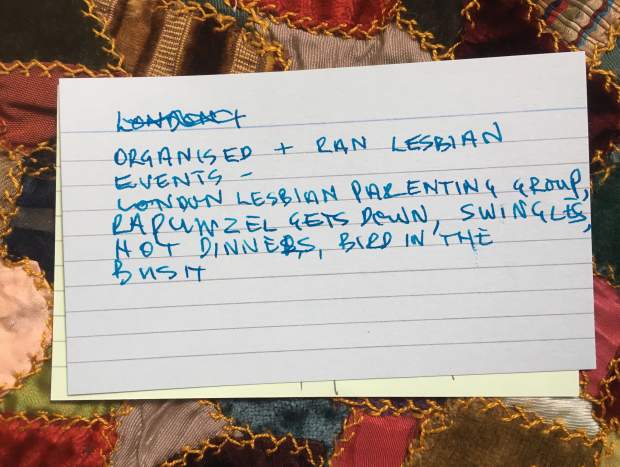 ORGANISED + RAN LESBIAN
EVENTS -
LONDON LESBIAN PARENTING GROUP,
RAPUNZEL GETS DOWN, SWINGLES,
HOT DINNERS, BIRD IN THE
BUSH